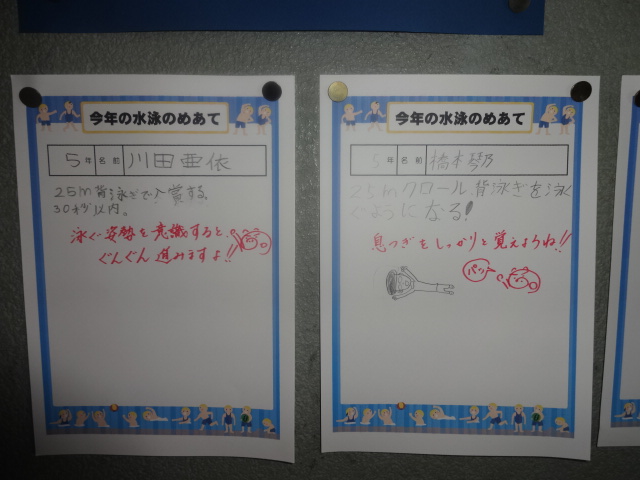 今年の水泳のめあて
5年 名前 川田亜依
25m背泳ぎで入賞する。
30秒以内。
泳ぐ姿勢を意識すると、
ぐんぐん進みますよ!!
今年の水泳のめあて
5年 名前 橋本琴乃
25mクロール、背泳ぎを泳
ぐようになる!
息つぎをしっかりと覚えようね!!
パッ